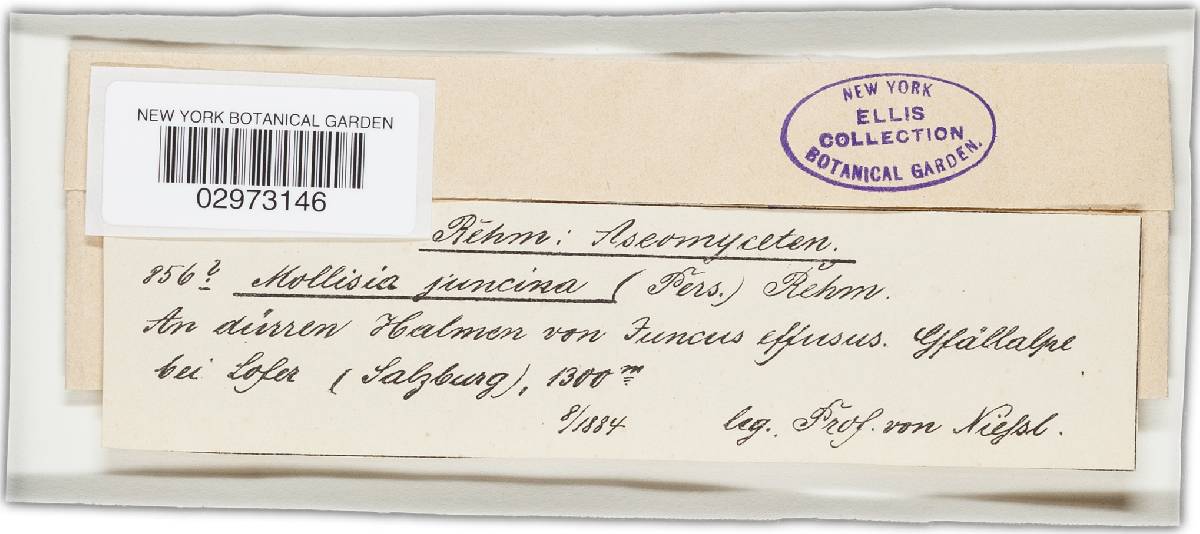 NEW YORK BOTANICAL GARDEN
02973146
NEW YORK
ELLIS
COLLECTION
BOTANICAL GARDEN.
Rehm: Ascomyceten.
856 b Mollisia juncina (Pers.) Rehm.
An dürren Halmen von Juncus effusus. Gfällalpe
bei Lofer (Salzburg), 1300 m
8/1884 leg. Prof. von Niessl.